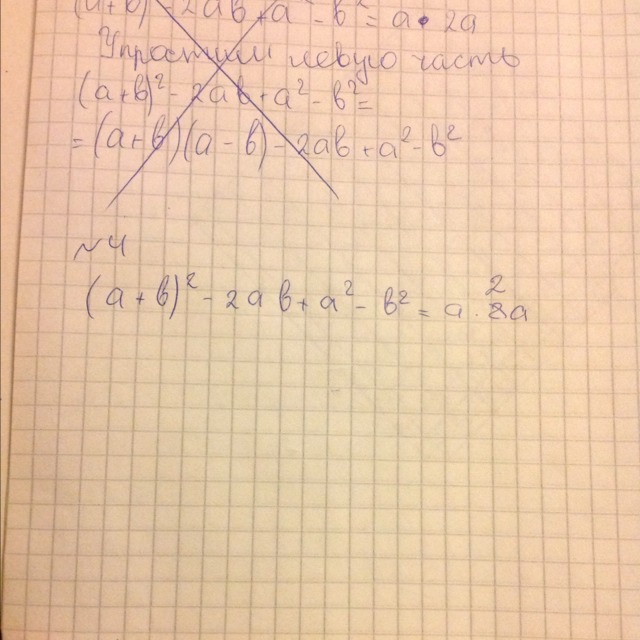 (a+b)² - 2ab + a² - b² = a · 2a
Упростим левую часть
(a+b)² - 2ab + a² - b² =
= (a+b)(a-b) - 2ab + a² - b²
№4
(a+b)² - 2ab + a² - b² = a · 2a